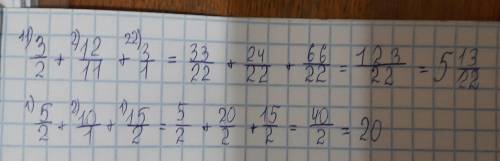 11) 3/2 + 2) 12/11 + 22) 3/1 = 33/22 + 24/22 + 66/22 = 123/22 = 5 13/22
1) 5/2 + 2) 10/1 + 1) 15/2 = 5/2 + 20/2 + 15/2 = 40/2 = 20